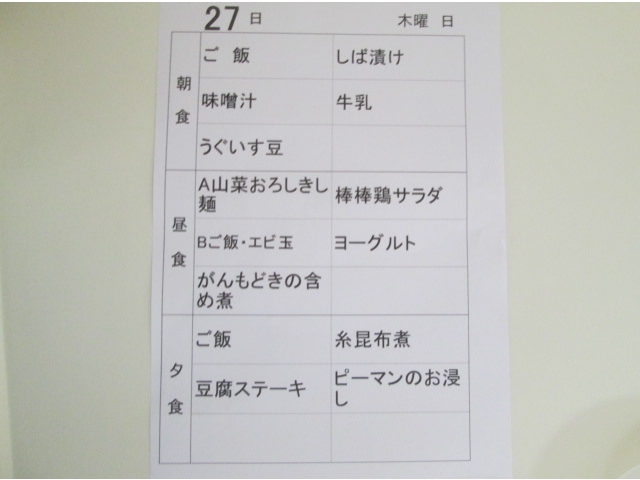 27日 木曜 日
朝食
ご 飯 しば漬け
味噌汁 牛乳
うぐいす豆
昼食
A山菜おろしきし
麺
棒棒鶏サラダ
Bご飯・エビ玉 ヨーグルト
がんもどきの含
め煮
夕食
ご飯 糸昆布煮
豆腐ステーキ
ピーマンのお浸
し